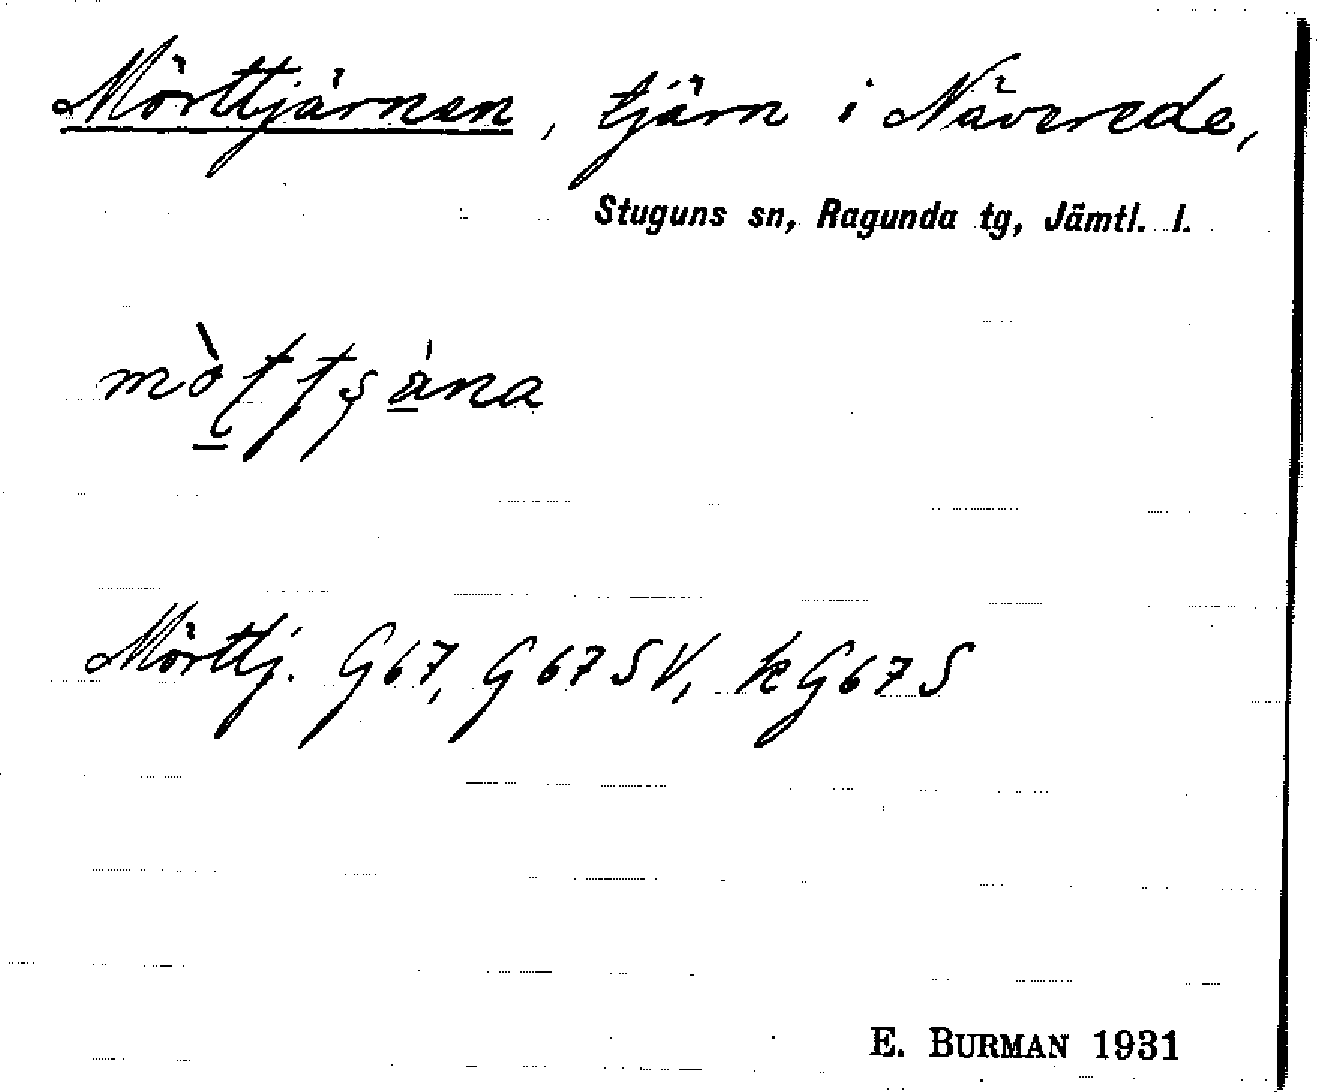 Mörttjärnen, tjärn i Näverede,
Stuguns sn, Ragunda tg, Jämtl. l.
Mörttj. G67, G67SV, kG67S
E. BURMAN 1931